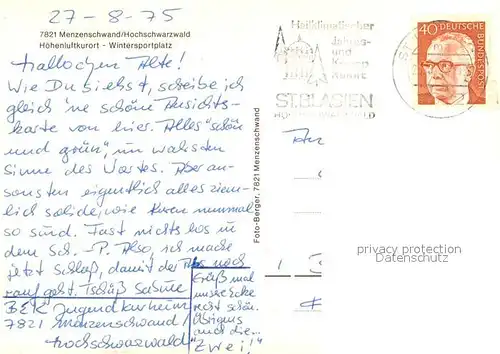 27-8-75
7821 Menzenschwand/Hochschwarzwald
Höhenluftkurort - Wintersportplatz
Hallochen Alte!
Wie Du siehst, schreibe ich
gleich 'ne schöne Ansichts-
karte von hier. Alles "schön
und grün", im wahrsten
Sinne des Wortes. Aber an-
sonsten eigentlich alles ziem-
lich solide, wie Kuren nunmal
so sind. Fast nichts los in
dem Sch.-P. Also, ich mache
jetzt Schluß, damit der noch
rauf geht. Tschüß
BEK Jugendkurheim
7821 Menzenschwand/
Hochschwarzwald
Grüß mal
unsere Ecke
recht schön.
Übrigens
auch die...
"Zwei!"
Foto-Berger, 7821 Menzenschwand
Heilklimatischer
Jahres-
und
Kneipp
Kurort
ST. BLASIEN
HOCHSCHWARZWALD
40
DEUTSCHE
BUNDESPOST
privacy protection
Datenschutz